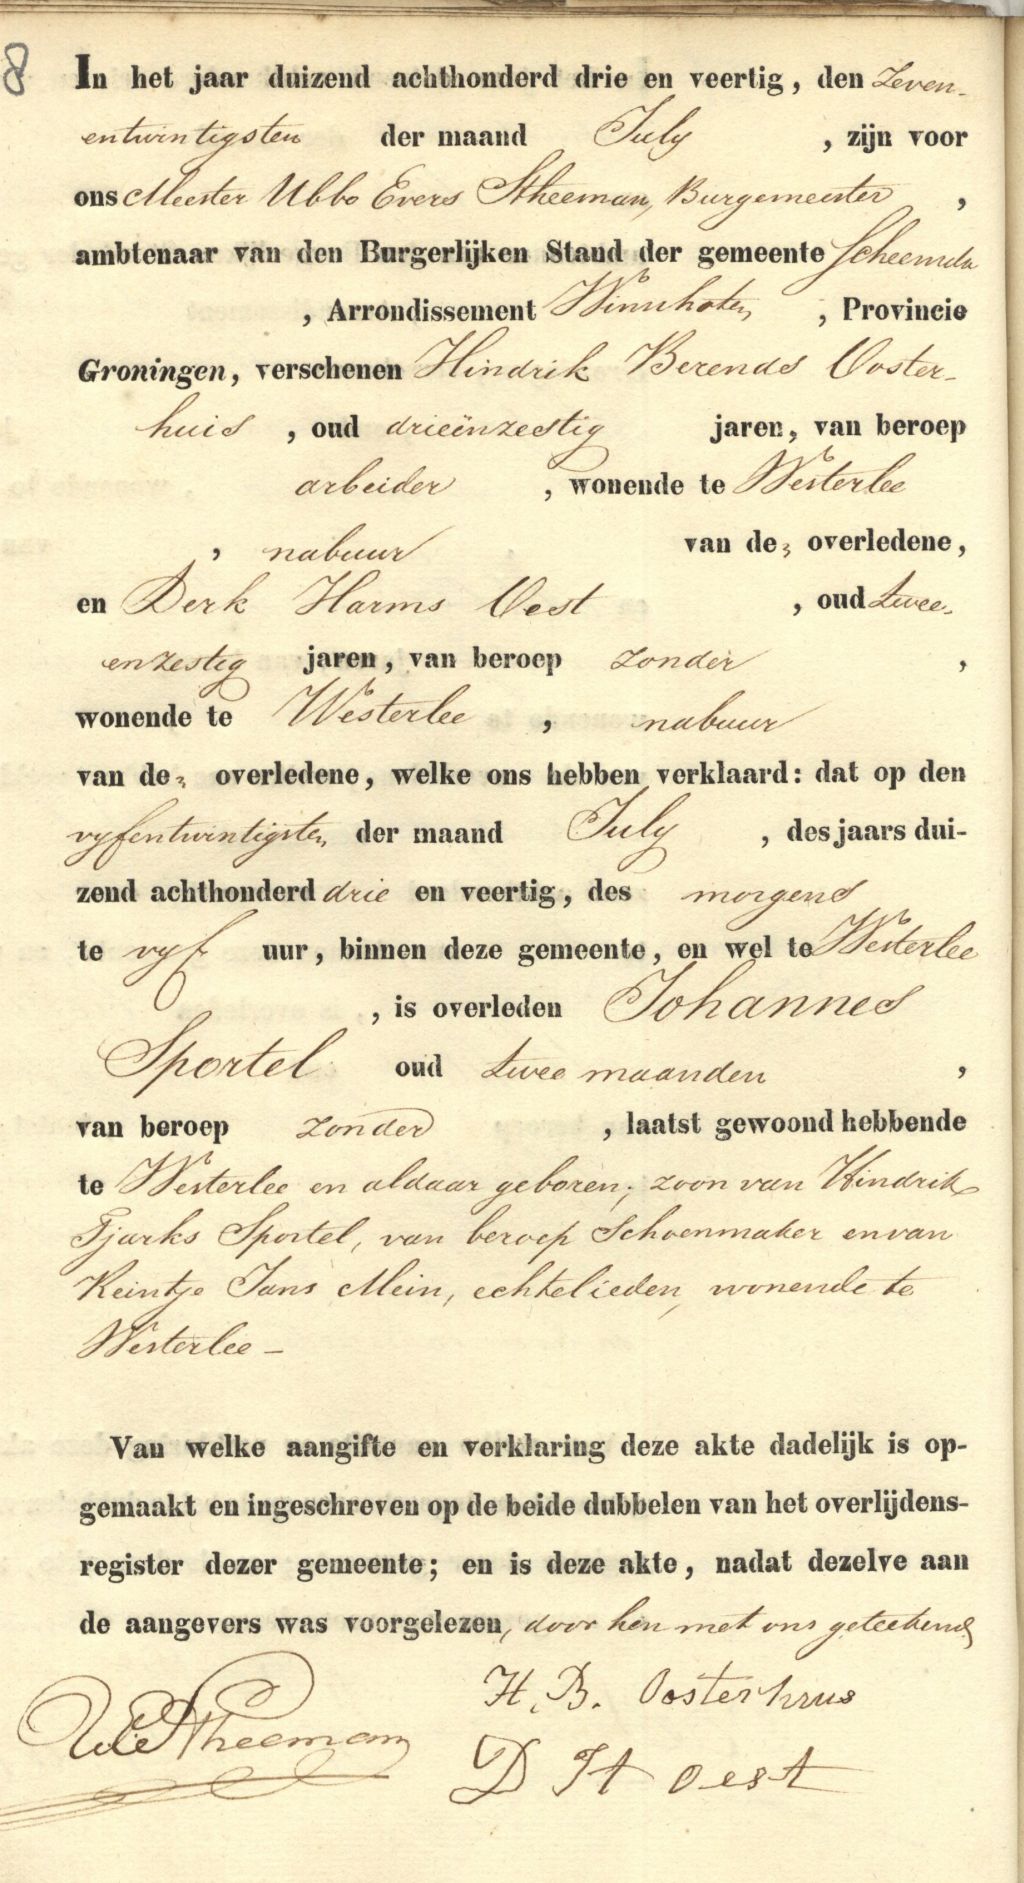 8
In het jaar duizend achthonderd drie en veertig, den Zeven-
entwintigsten der maand July , zijn voor
ons Meester Ubbo Evers Stheeman, Burgemeester ,
ambtenaar van den Burgerlijken Stand der gemeente Scheemda
, Arrondissement Winschoten , Provincie
Groningen, verschenen Hindrik Berends Ooster-
huis , oud drieënzestig jaren, van beroep
arbeider , wonende te Westerlee
, nabuur van de overledene,
en Derk Harms Oest , oud twee-
enzestig jaren, van beroep zonder ,
wonende te Westerlee , nabuur
van de overledene, welke ons hebben verklaard: dat op den
vyfentwintigsten der maand July , des jaars dui-
zend achthonderd drie en veertig, des morgens
te vyf uur, binnen deze gemeente, en wel te Westerlee
, is overleden Johannes
Sportel oud twee maanden ,
van beroep zonder , laatst gewoond hebbende
te Westerlee en aldaar geboren; zoon van Hindrik
Tjarks Sportel, van beroep Schoenmaker en van
Reintje Jans Mein, echtelieden, wonende te
Westerlee -
Van welke aangifte en verklaring deze akte dadelijk is op-
gemaakt en ingeschreven op de beide dubbelen van het overlijdens-
register dezer gemeente; en is deze akte, nadat dezelve aan
de aangevers was voorgelezen, door hen met ons geteekend
H. B. Oosterhuis
UEStheeman
D H Oest